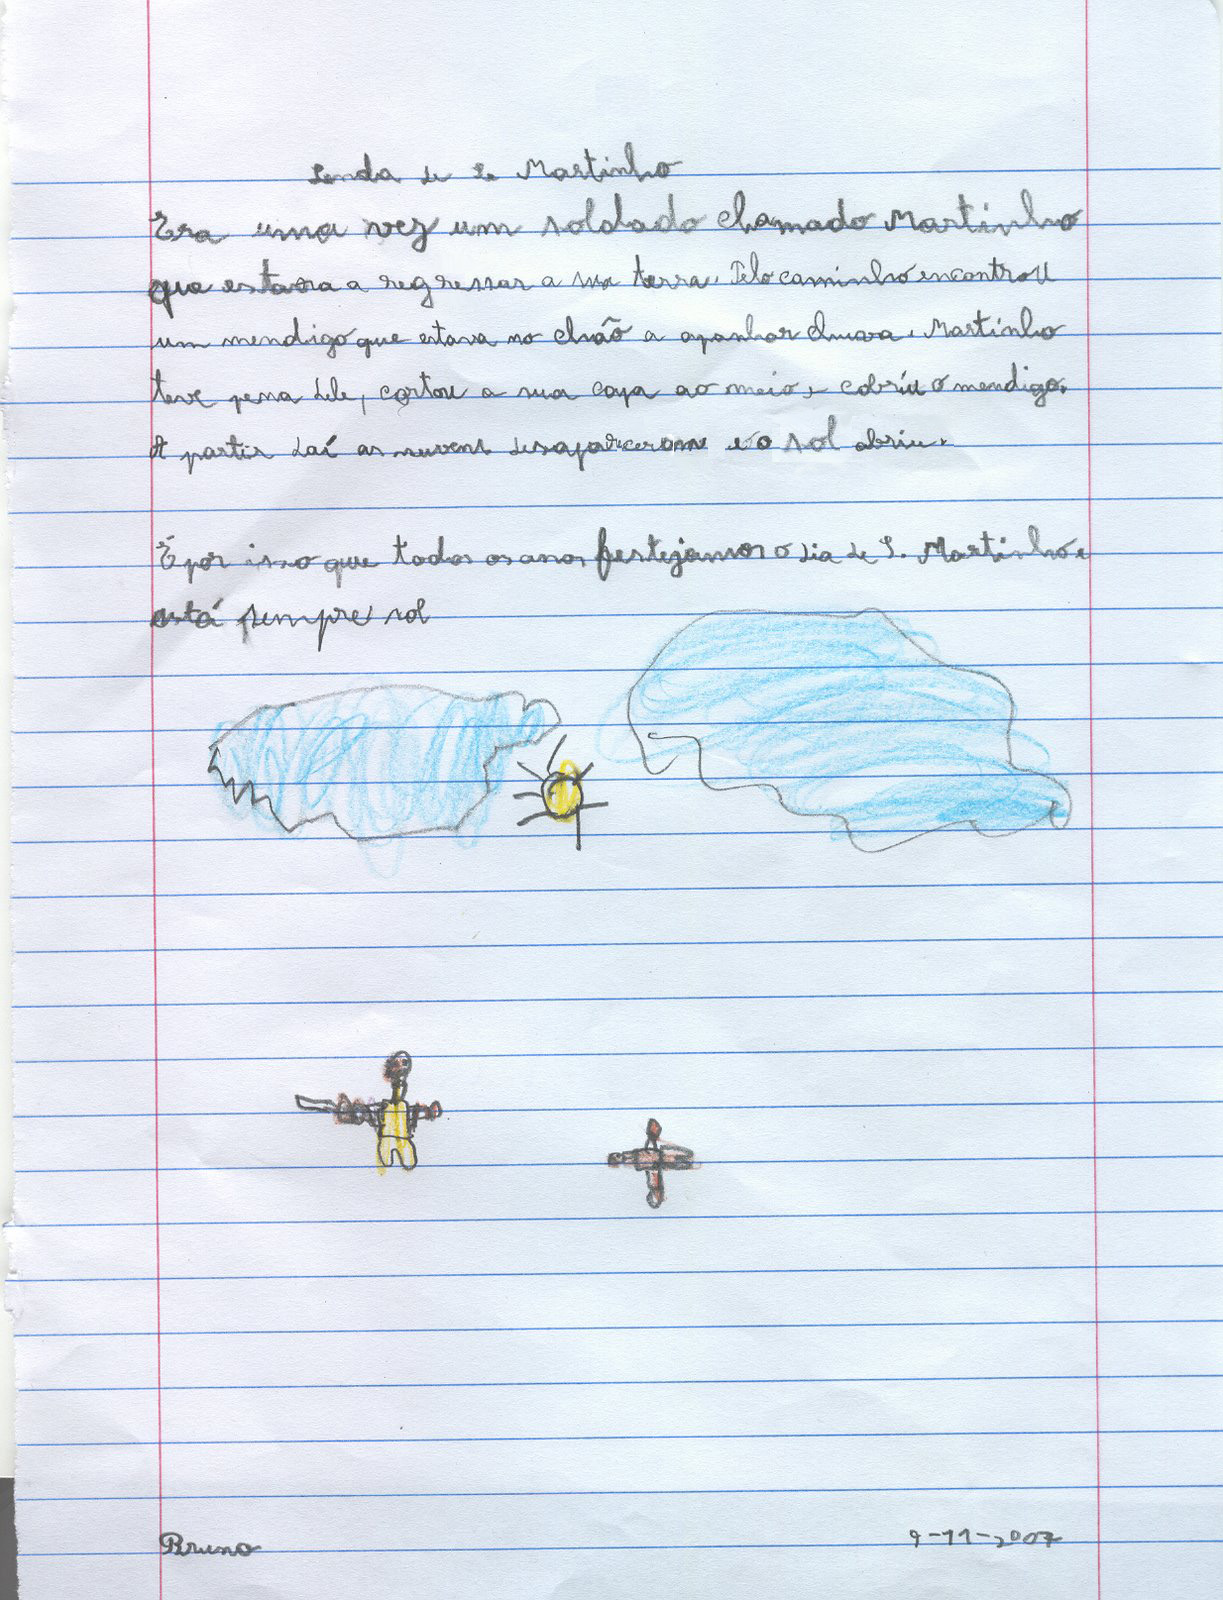 Lenda de S. Martinho
Era uma vez um soldado chamado Martinho
que estava a regressar a sua terra. Pelo caminho encontrou
um mendigo que estava no chão a apanhar chuva. Martinho
teve pena dele, cortou a sua capa ao meio e cobriu o mendigo.
A partir daí as nuvens desapareceram e o sol abriu.
É por isso que todos os anos festejamos o dia de S. Martinho e
está sempre sol
Bruno
9-11-2007